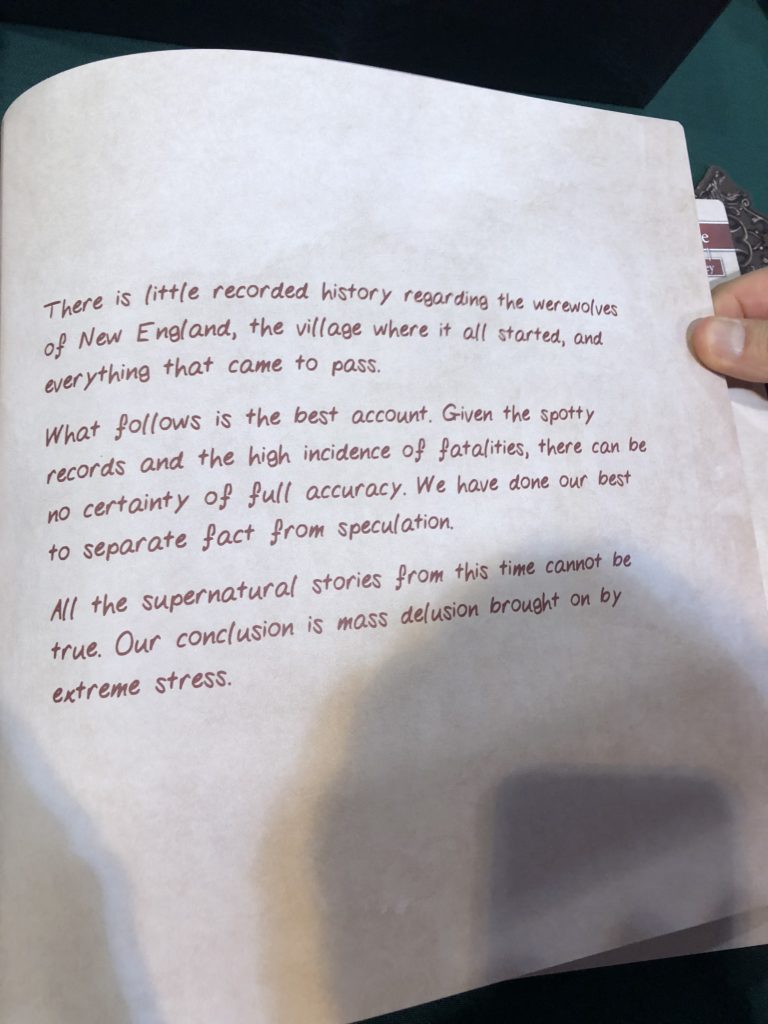 There is little recorded history regarding the werewolves
of New England, the village where it all started, and
everything that came to pass.
What follows is the best account. Given the spotty
records and the high incidence of fatalities, there can be
no certainty of full accuracy. We have done our best
to separate fact from speculation.
All the supernatural stories from this time cannot be
true. Our conclusion is mass delusion brought on by
extreme stress.